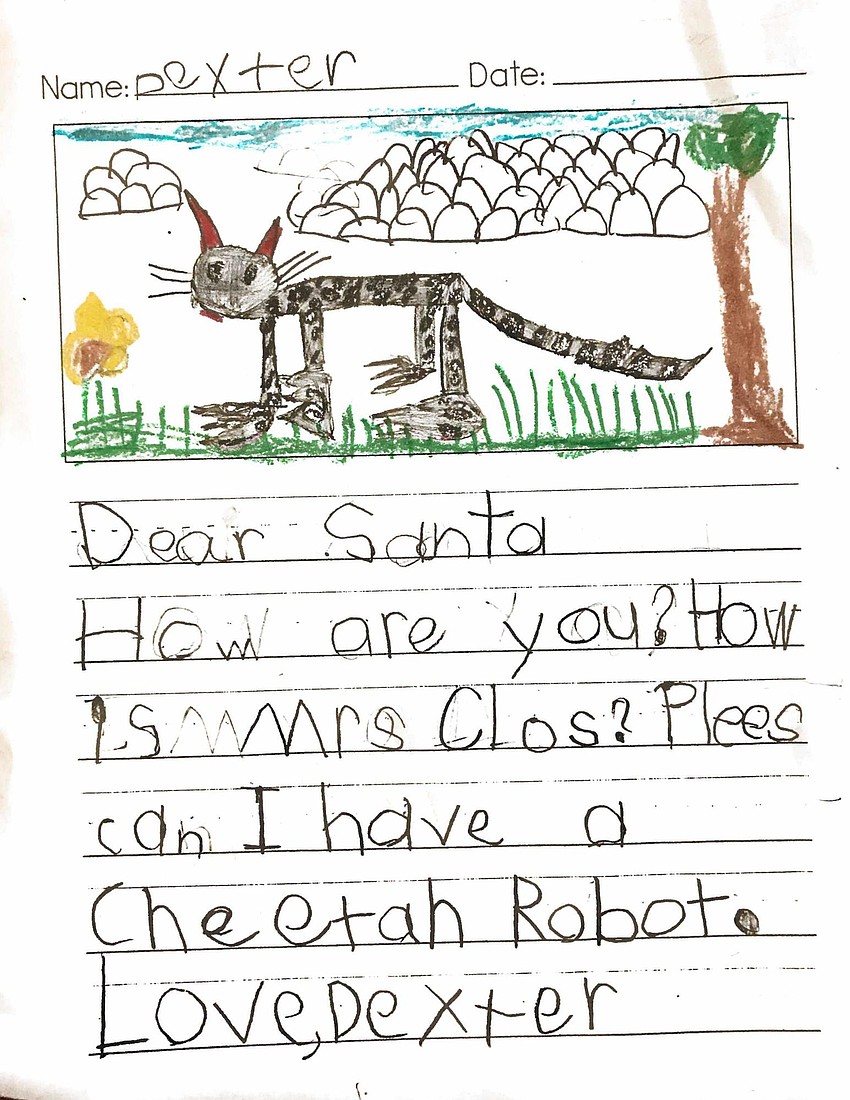 Name: Dexter Date:
Dear Santa
How are you? How
is Mrs Clos? Plees
can I have a
Cheetah Robot.
Love, Dexter